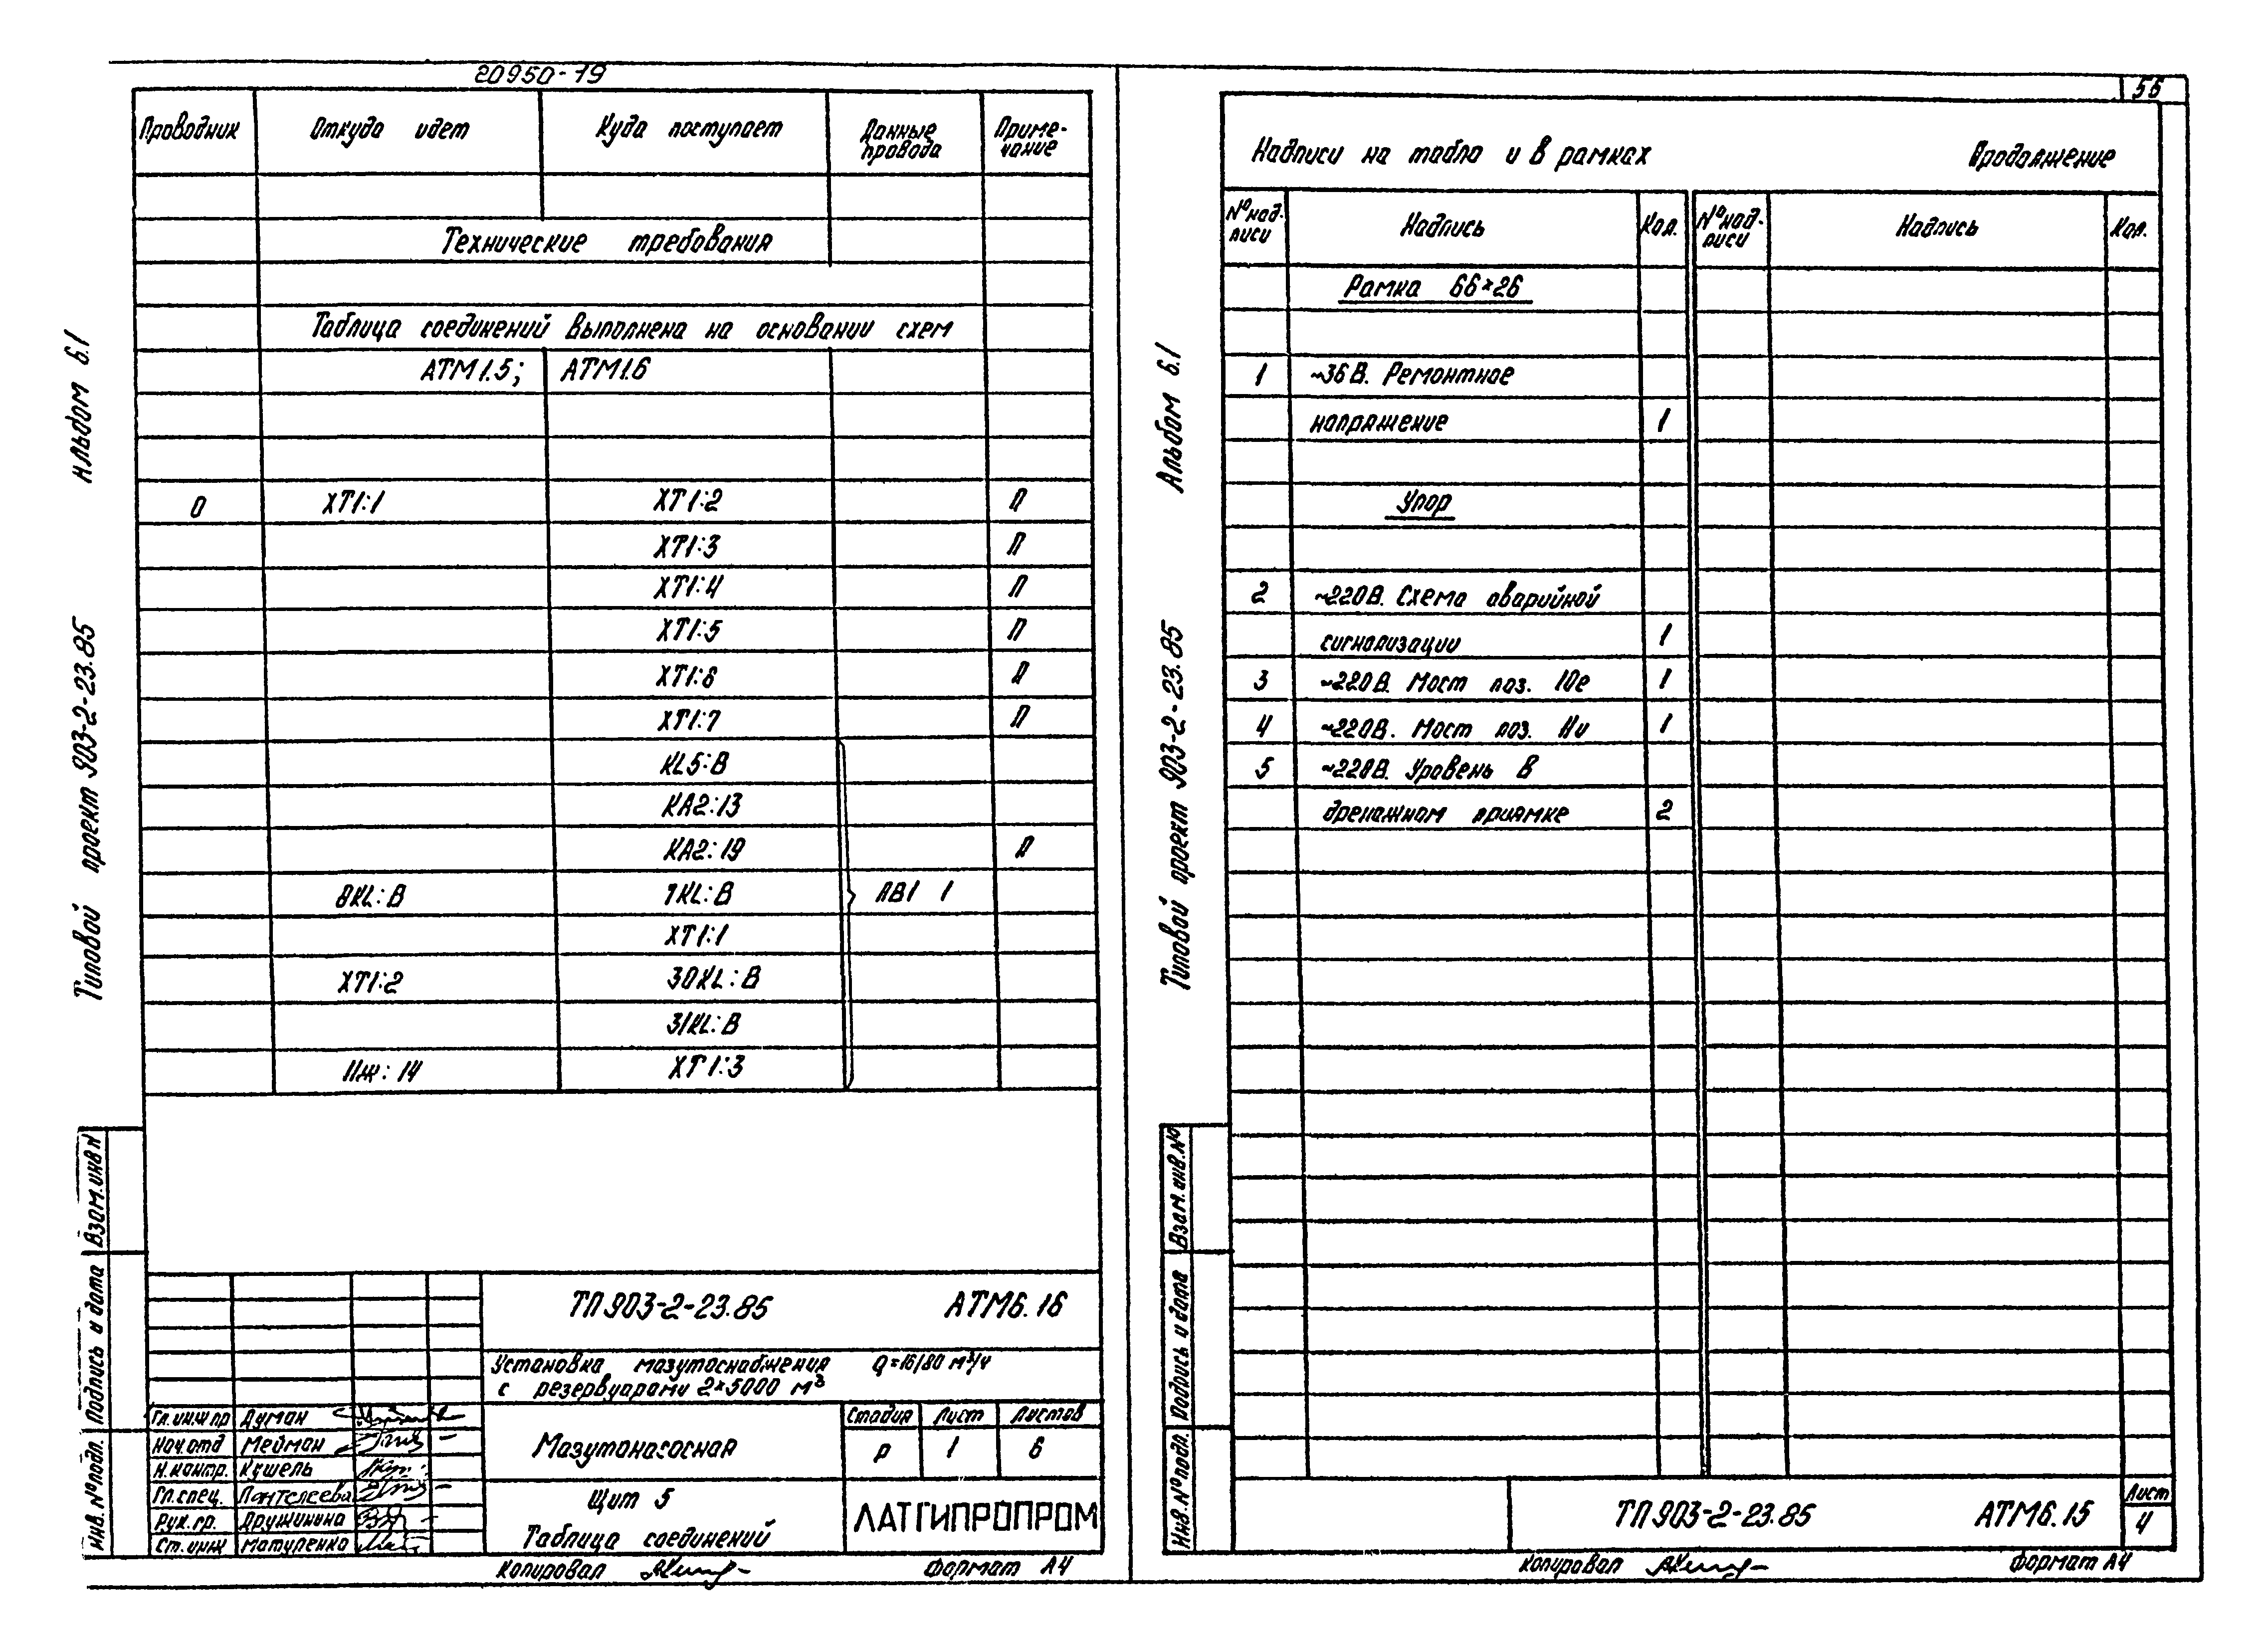 20950-19
56
Альбом 6.1
Типовой проект 903-2-23.85
Проводник Откуда идет Куда поступает Данные провода Примечание
Технические требования
Таблица соединений выполнена на основании схем
АТМ1.5; АТМ1.6
0 ХТ1:1 ХТ1:2 П
ХТ1:3 П
ХТ1:4 П
ХТ1:5 П
ХТ1:6 П
ХТ1:7 П
KL5:В
КА2:13
КА2:19 П
8KL:В 7KL:В ПВ1 1
ХТ1:1
ХТ1:2 30KL:В
31KL:В
11ж:14 ХТ1:3
Взам.инв N
Подпись и дата
Инв.№подл.
ТП903-2-23.85 АТМ6.16
Установка мазутоснабжения Q=16/80 м³/ч
с резервуарами 2×5000 м³
Гл.инж пр Думан
Нач.отд Мейман
Н.контр. Кушель
Гл.спец. Пантелеева
Рук.гр. Дружинина
Ст.инж Матуленко
Мазутонасосная
Стадия Лист Листов
Р 1 6
Щит 5
Таблица соединений
ЛАТГИПРОПРОМ
Копировал
Формат А4
Альбом 6.1
Типовой проект 903-2-23.85
Надписи на табло и в рамках Продолжение
№ надписи Надпись Кол. № надписи Надпись Кол.
Рамка 66×26
1 ~36В. Ремонтное
напряжение 1
Упор
2 ~220В. Схема аварийной
сигнализации 1
3 ~220В. Мост поз. 10е 1
4 ~220В. Мост поз. 11и 1
5 ~220В. Уровень в
дренажном приямке 2
Взам.инв.№
Подпись и дата
Инв.№подл.
ТП903-2-23.85 АТМ6.15
Лист
4
Копировал
Формат А4